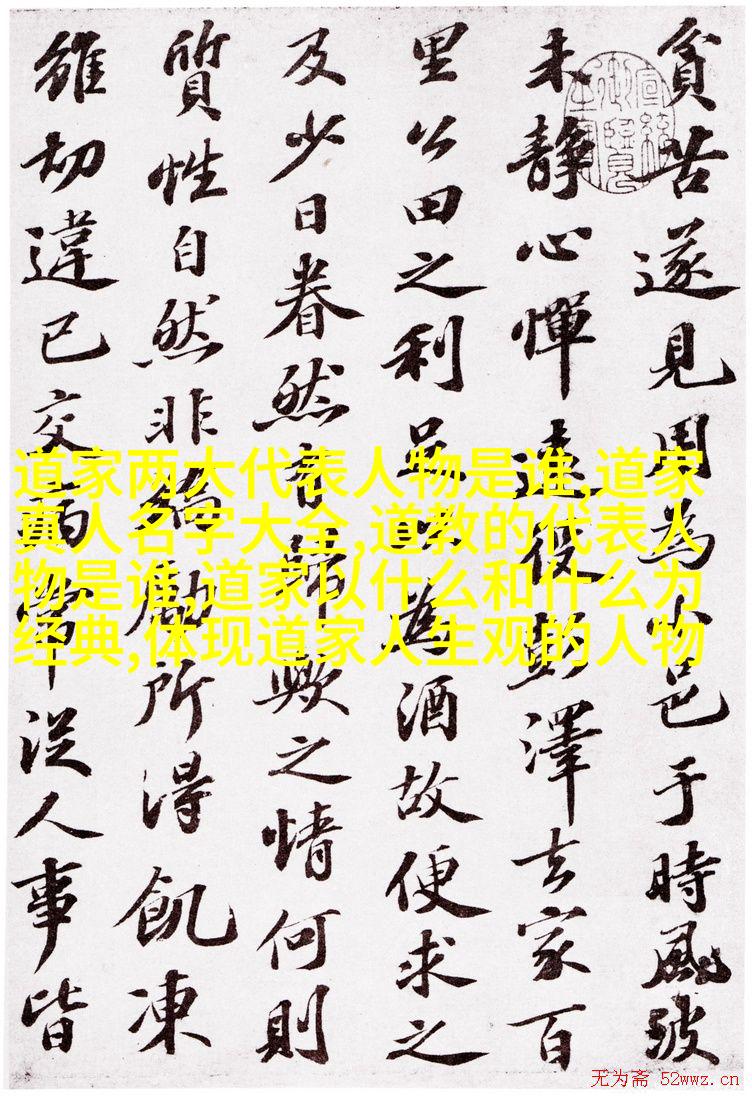 貧苦遂見用為小邑于時風波
未静心憚遠役彭澤去家百
里公田之利足以為酒故便求之
及少日眷然有歸歟之情何則
質性自然非矯勵所得飢凍
雖切違己交病嘗從人事皆
道家两大代表人物是谁,道家
真人名字大全,道教的代表人
物是谁,道家以什么和什么为
经典,体现道家人生观的人物
无为斋 52wwz.cn